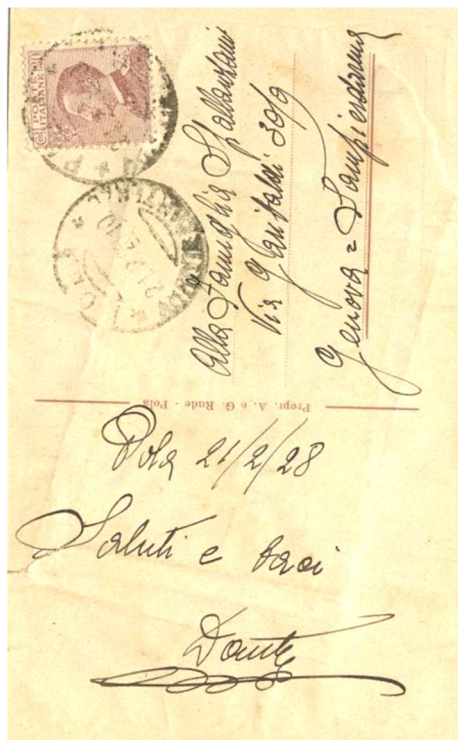 POSTE ITALIANE
Alla Famiglia Spallanzani
Via Garibaldi 30/9
Genova = Sampierdarena
Propr. A. e G. Rude - Pola
Pola 21/2/28
Saluti e baci
Dante